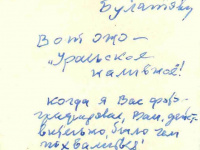 Булатову
Вот оно —
"Уральское
наливное!
Когда я Вас фото-
графировал, Вам, дейст-
вительно, было чем
похвалиться